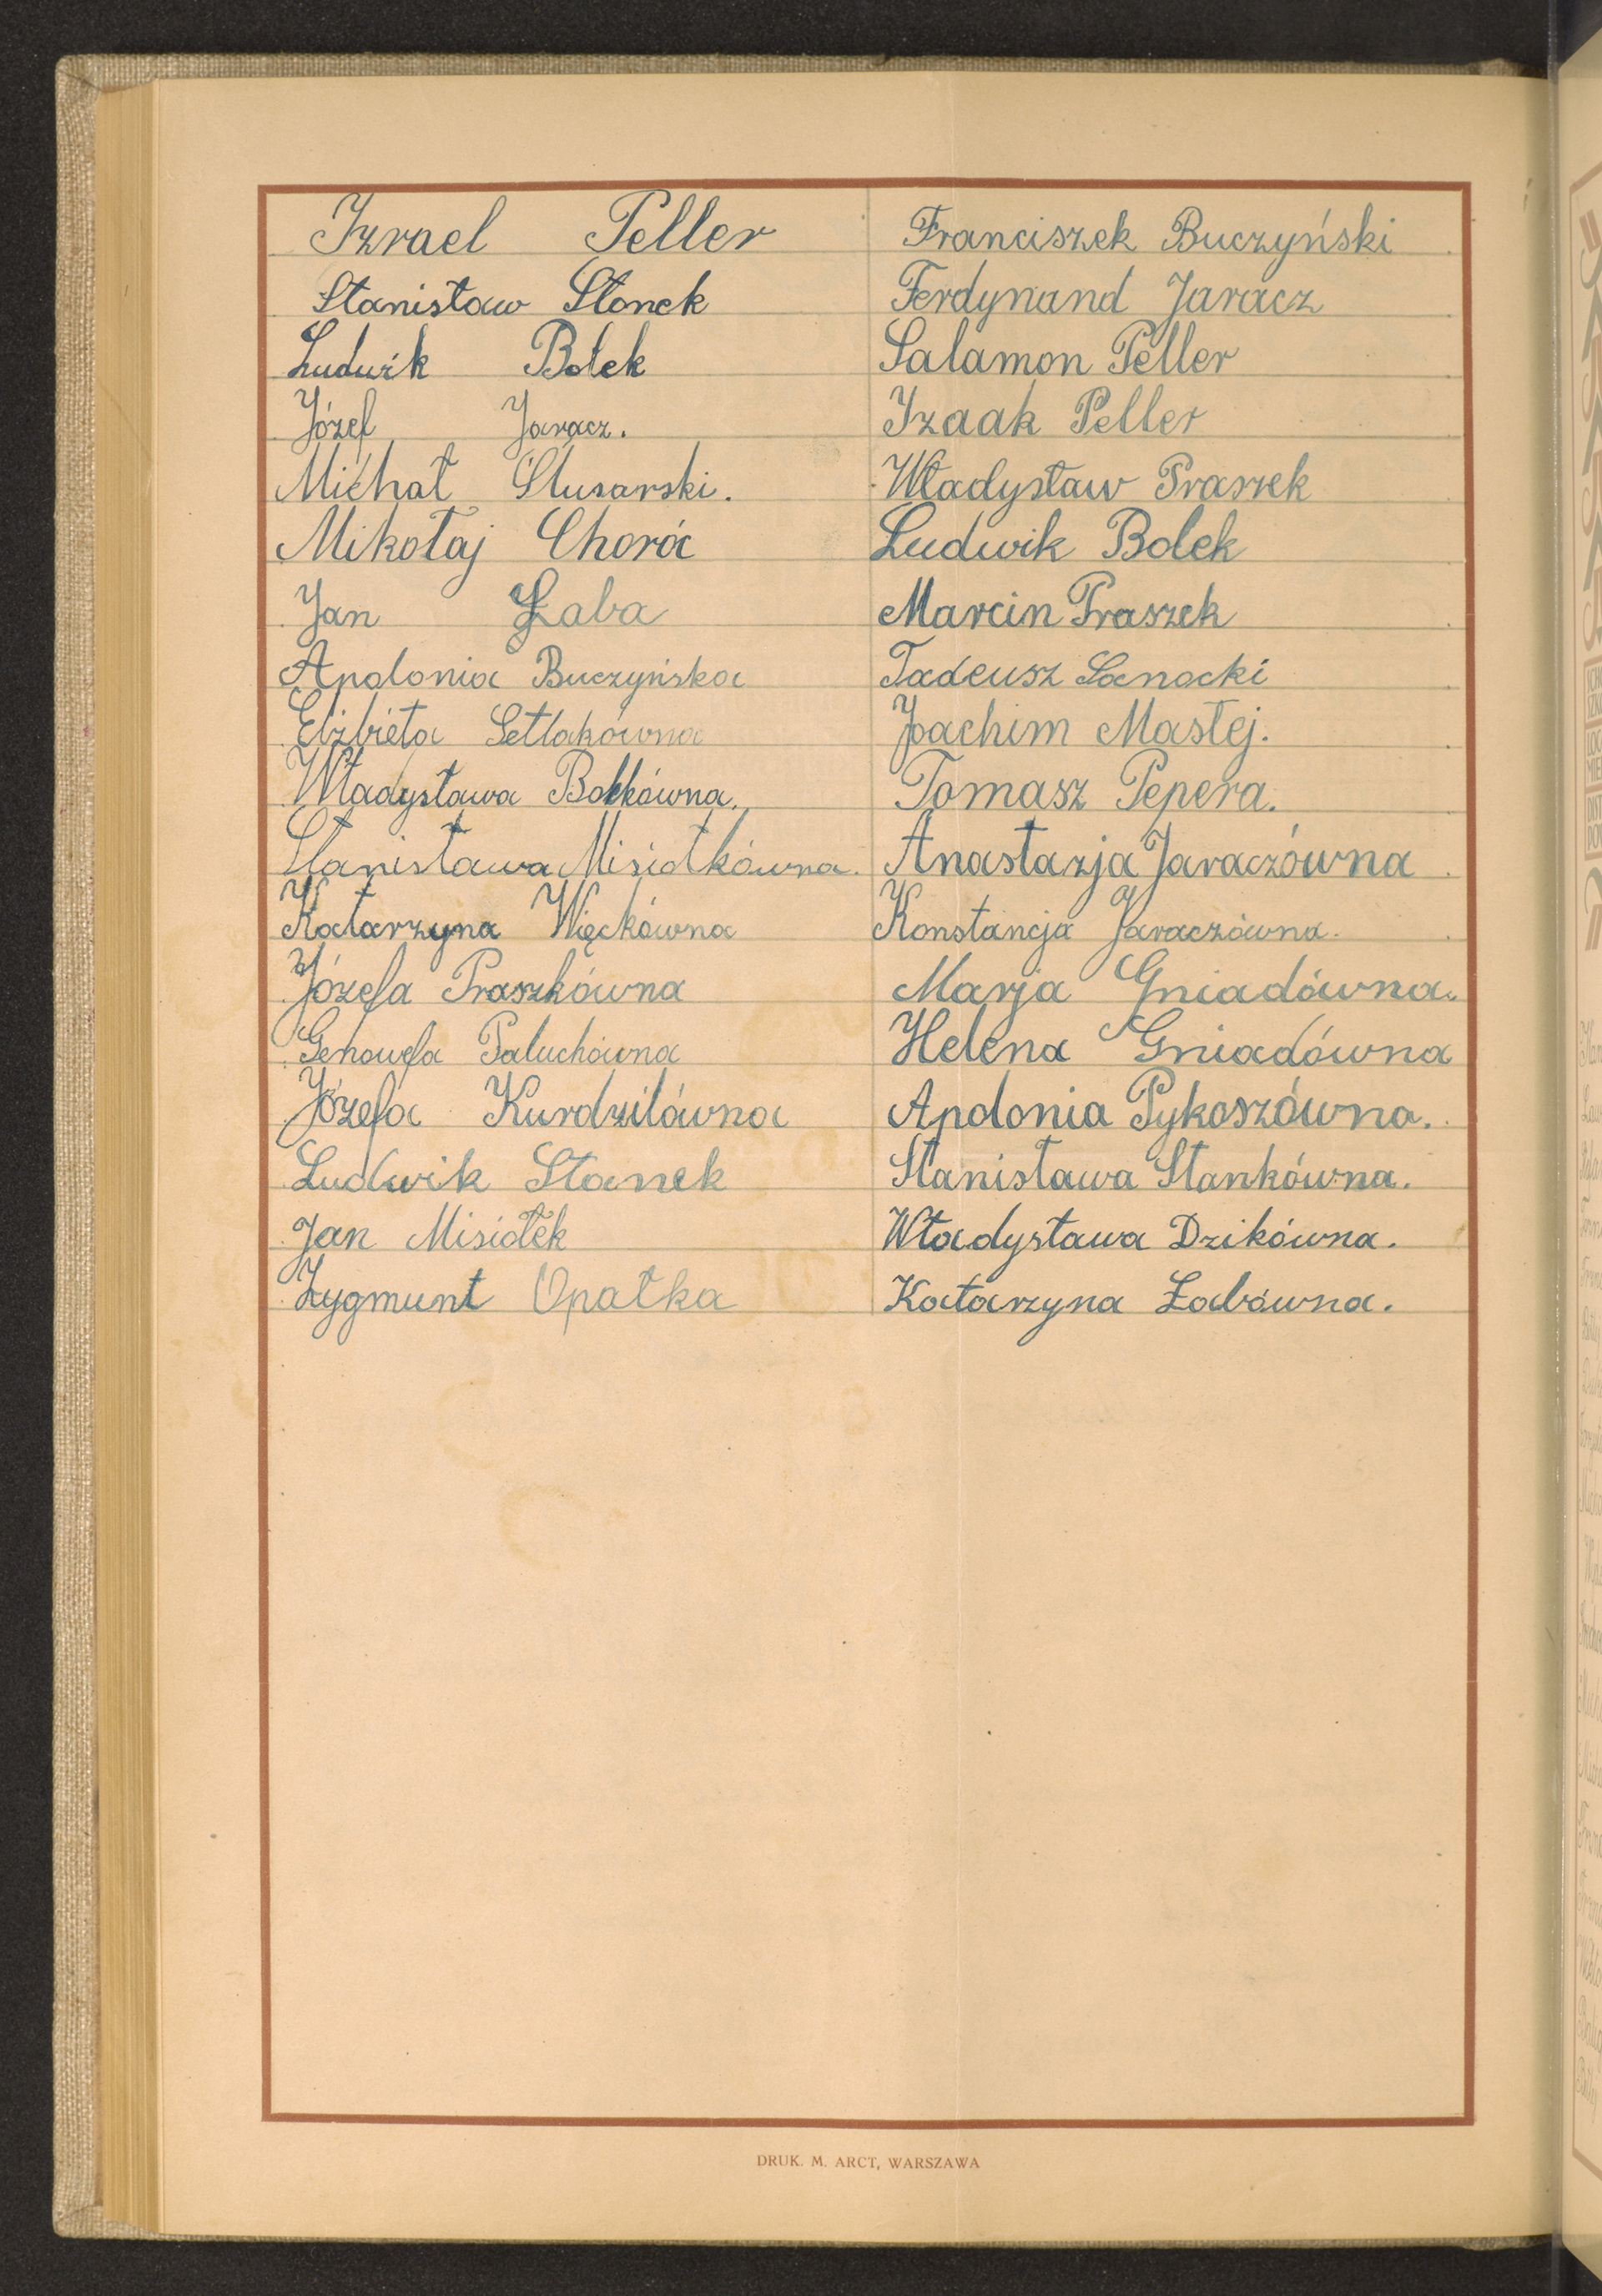 Izrael Peller
Stanisław Stonek
Ludwik Bolek
Józef Jaracz.
Michał Ślusarski.
Mikołaj Choróc
Jan Łaba
Apolonia Buczyńska
Elżbieta Setlakówna
Władysława Bolkówna.
Stanisława Misiołkówna.
Katarzyna Więckówna
Józefa Praszkówna
Genowefa Paluchówna
Józefa Kurdzilówna
Ludwik Stanek
Jan Misiołek
Zygmunt Opałka
Franciszek Buczyński
Ferdynand Jaracz
Salamon Peller
Izaak Peller
Władysław Praszek
Ludwik Bolek
Marcin Praszek
Tadeusz Sanocki
Joachim Mastej.
Tomasz Pepera.
Anastazja Jaraczówna
Konstancja Jaraczówna.
Marja Gniadówna.
Helena Gniadówna
Apolonia Pykoszówna.
Stanisława Stankówna.
Władysława Dzikówna.
Katarzyna Łabówna.
DRUK. M. ARCT, WARSZAWA